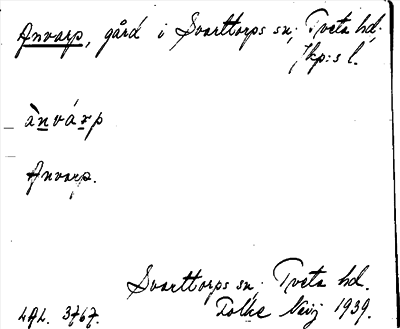 Anvarp, gård i Svarttorps sn; Tveta hd;
Jkp:s l.
ànvárp
Anvarp.
Svarttorps sn; Tveta hd.
Folke Neij 1939.
3767.